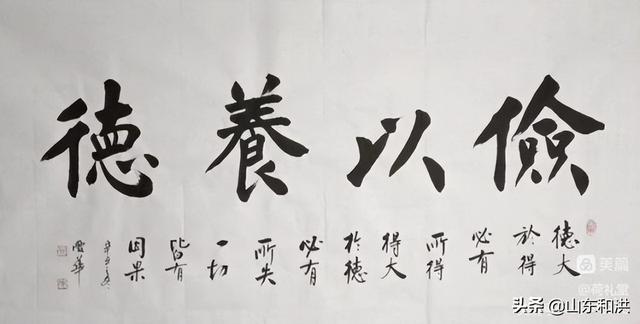 儉以養德
德大
於得
必有
所得
得大
於德
必有
所失
一切
皆有
因果
辛丑
美篇
@荷礼堂
头条 @山东和洪